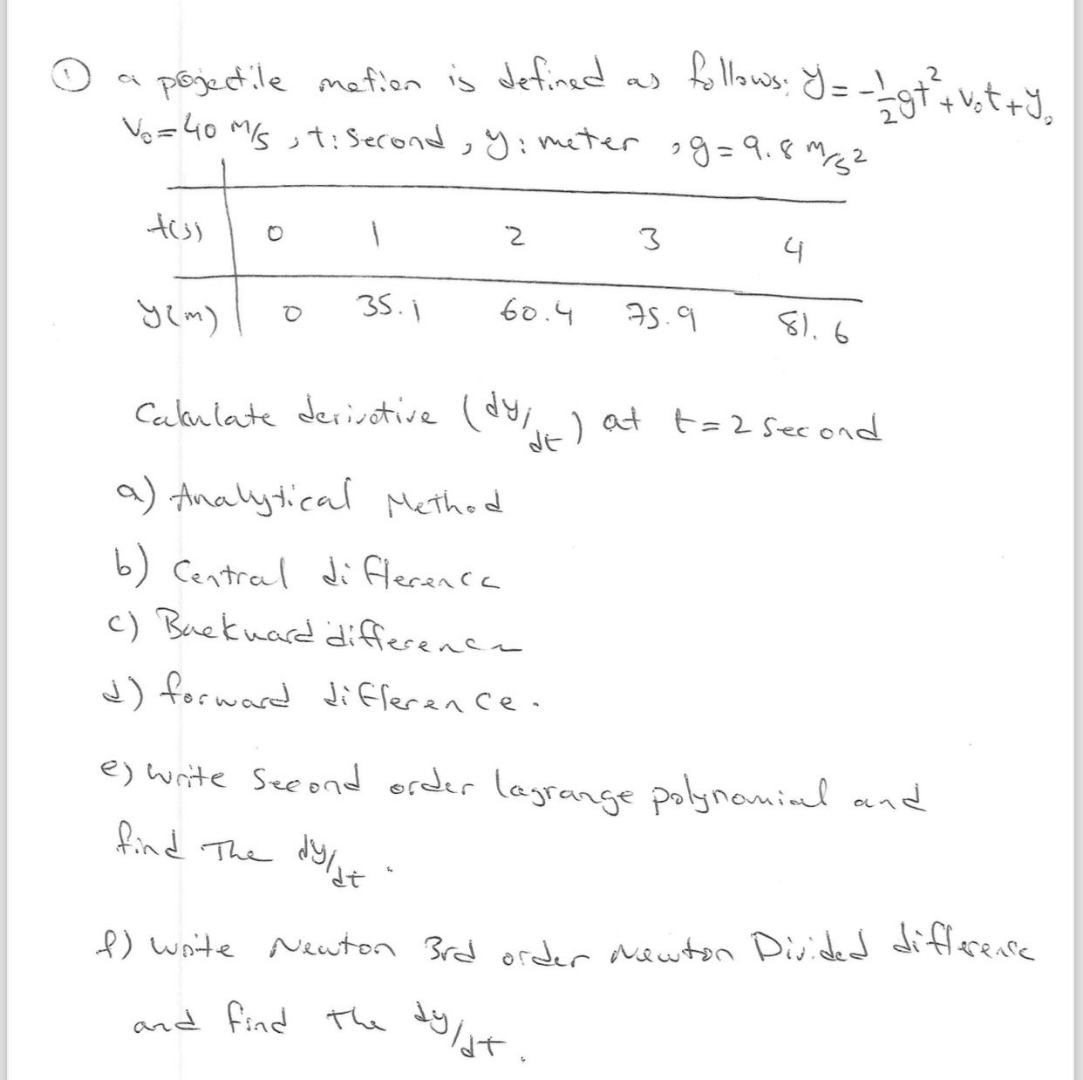 ① a projectile motion is defined as follows: y = -1/2 gt² + V₀t + y₀
V₀ = 40 m/s, t: Second, y: meter, g = 9.8 m/s²
t(s) 0 1 2 3 4
y(m) 0 35.1 60.4 75.9 81.6
Calculate derivative (dy/dt) at t = 2 second
a) Analytical Method
b) Central difference
c) Backward difference
d) forward difference.
e) write Second order lagrange polynomial and
find The dy/dt.
f) write Newton 3rd order Newton Divided difference
and find the dy/dt.